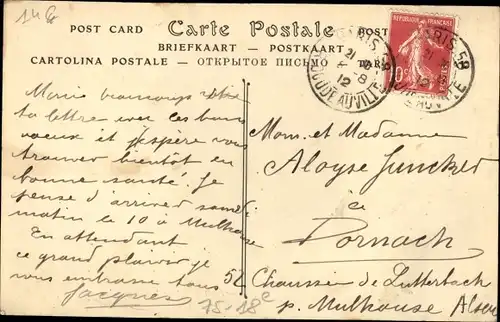 14 €
POST CARD Carte Postale POST
BRIEFKAART — POSTKAART
CARTOLINA POSTALE — ОТКРЫТОЕ ПИСЬМО
RÉPUBLIQUE FRANÇAISE
10c
POSTES
PARIS 58
21
12
R. DOUDEAUVILLE
PARIS 58
21
12
DOUDEAUVILLE
Merci beaucoup
ta lettre avec les bons
voeux et j'espère vous
trouver bientôt en
bonne santé. Je
pense d'arriver samedi
matin le 10 à Mulhouse
En attendant
ce grand plaisir je
vous embrasse tous
Jacques
Mon. et Madame
Aloyse Juncker
à
Dornach
Chaussée de Lutterbach
p. Mulhouse Alsace
52
75-18e